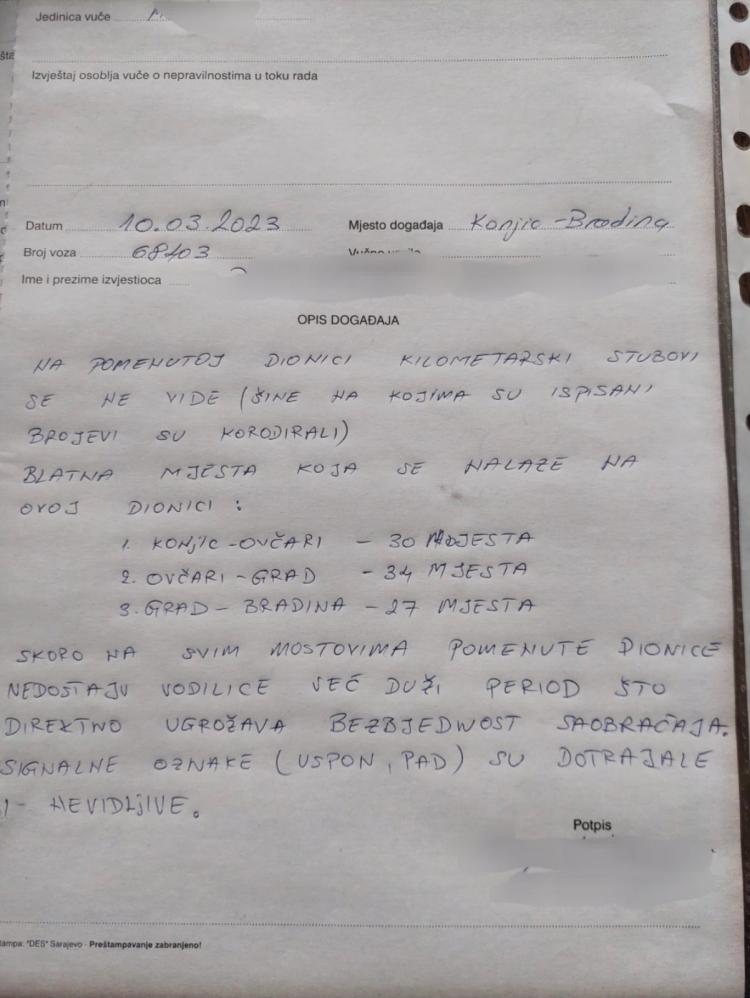 Jedinica vuče
Izvještaj osoblja vuče o nepravilnostima u toku rada
Datum 10.03.2023 Mjesto događaja Konjic - Bradina
Broj voza 68403
Ime i prezime izvjestioca
OPIS DOGAĐAJA
NA POMENUTOJ DIONICI KILOMETARSKI STUBOVI
SE NE VIDE (ŠINE NA KOJIMA SU ISPISANI
BROJEVI SU KORODIRALI)
BLATNA MJESTA KOJA SE NALAZE NA
OVOJ DIONICI :
1. KONJIC - OVČARI - 30 MJESTA
2. OVČARI - GRAD - 34 MJESTA
3. GRAD - BRADINA - 27 MJESTA
SKORO NA SVIM MOSTOVIMA POMENUTE DIONICE
NEDOSTAJU VODILICE VEĆ DUŽI PERIOD ŠTO
DIREKTNO UGROŽAVA BEZBJEDNOST SAOBRAĆAJA.
SIGNALNE OZNAKE (USPON, PAD) SU DOTRAJALE
I - NEVIDLJIVE.
Potpis
"DES" Sarajevo - Preštampavanje zabranjeno!